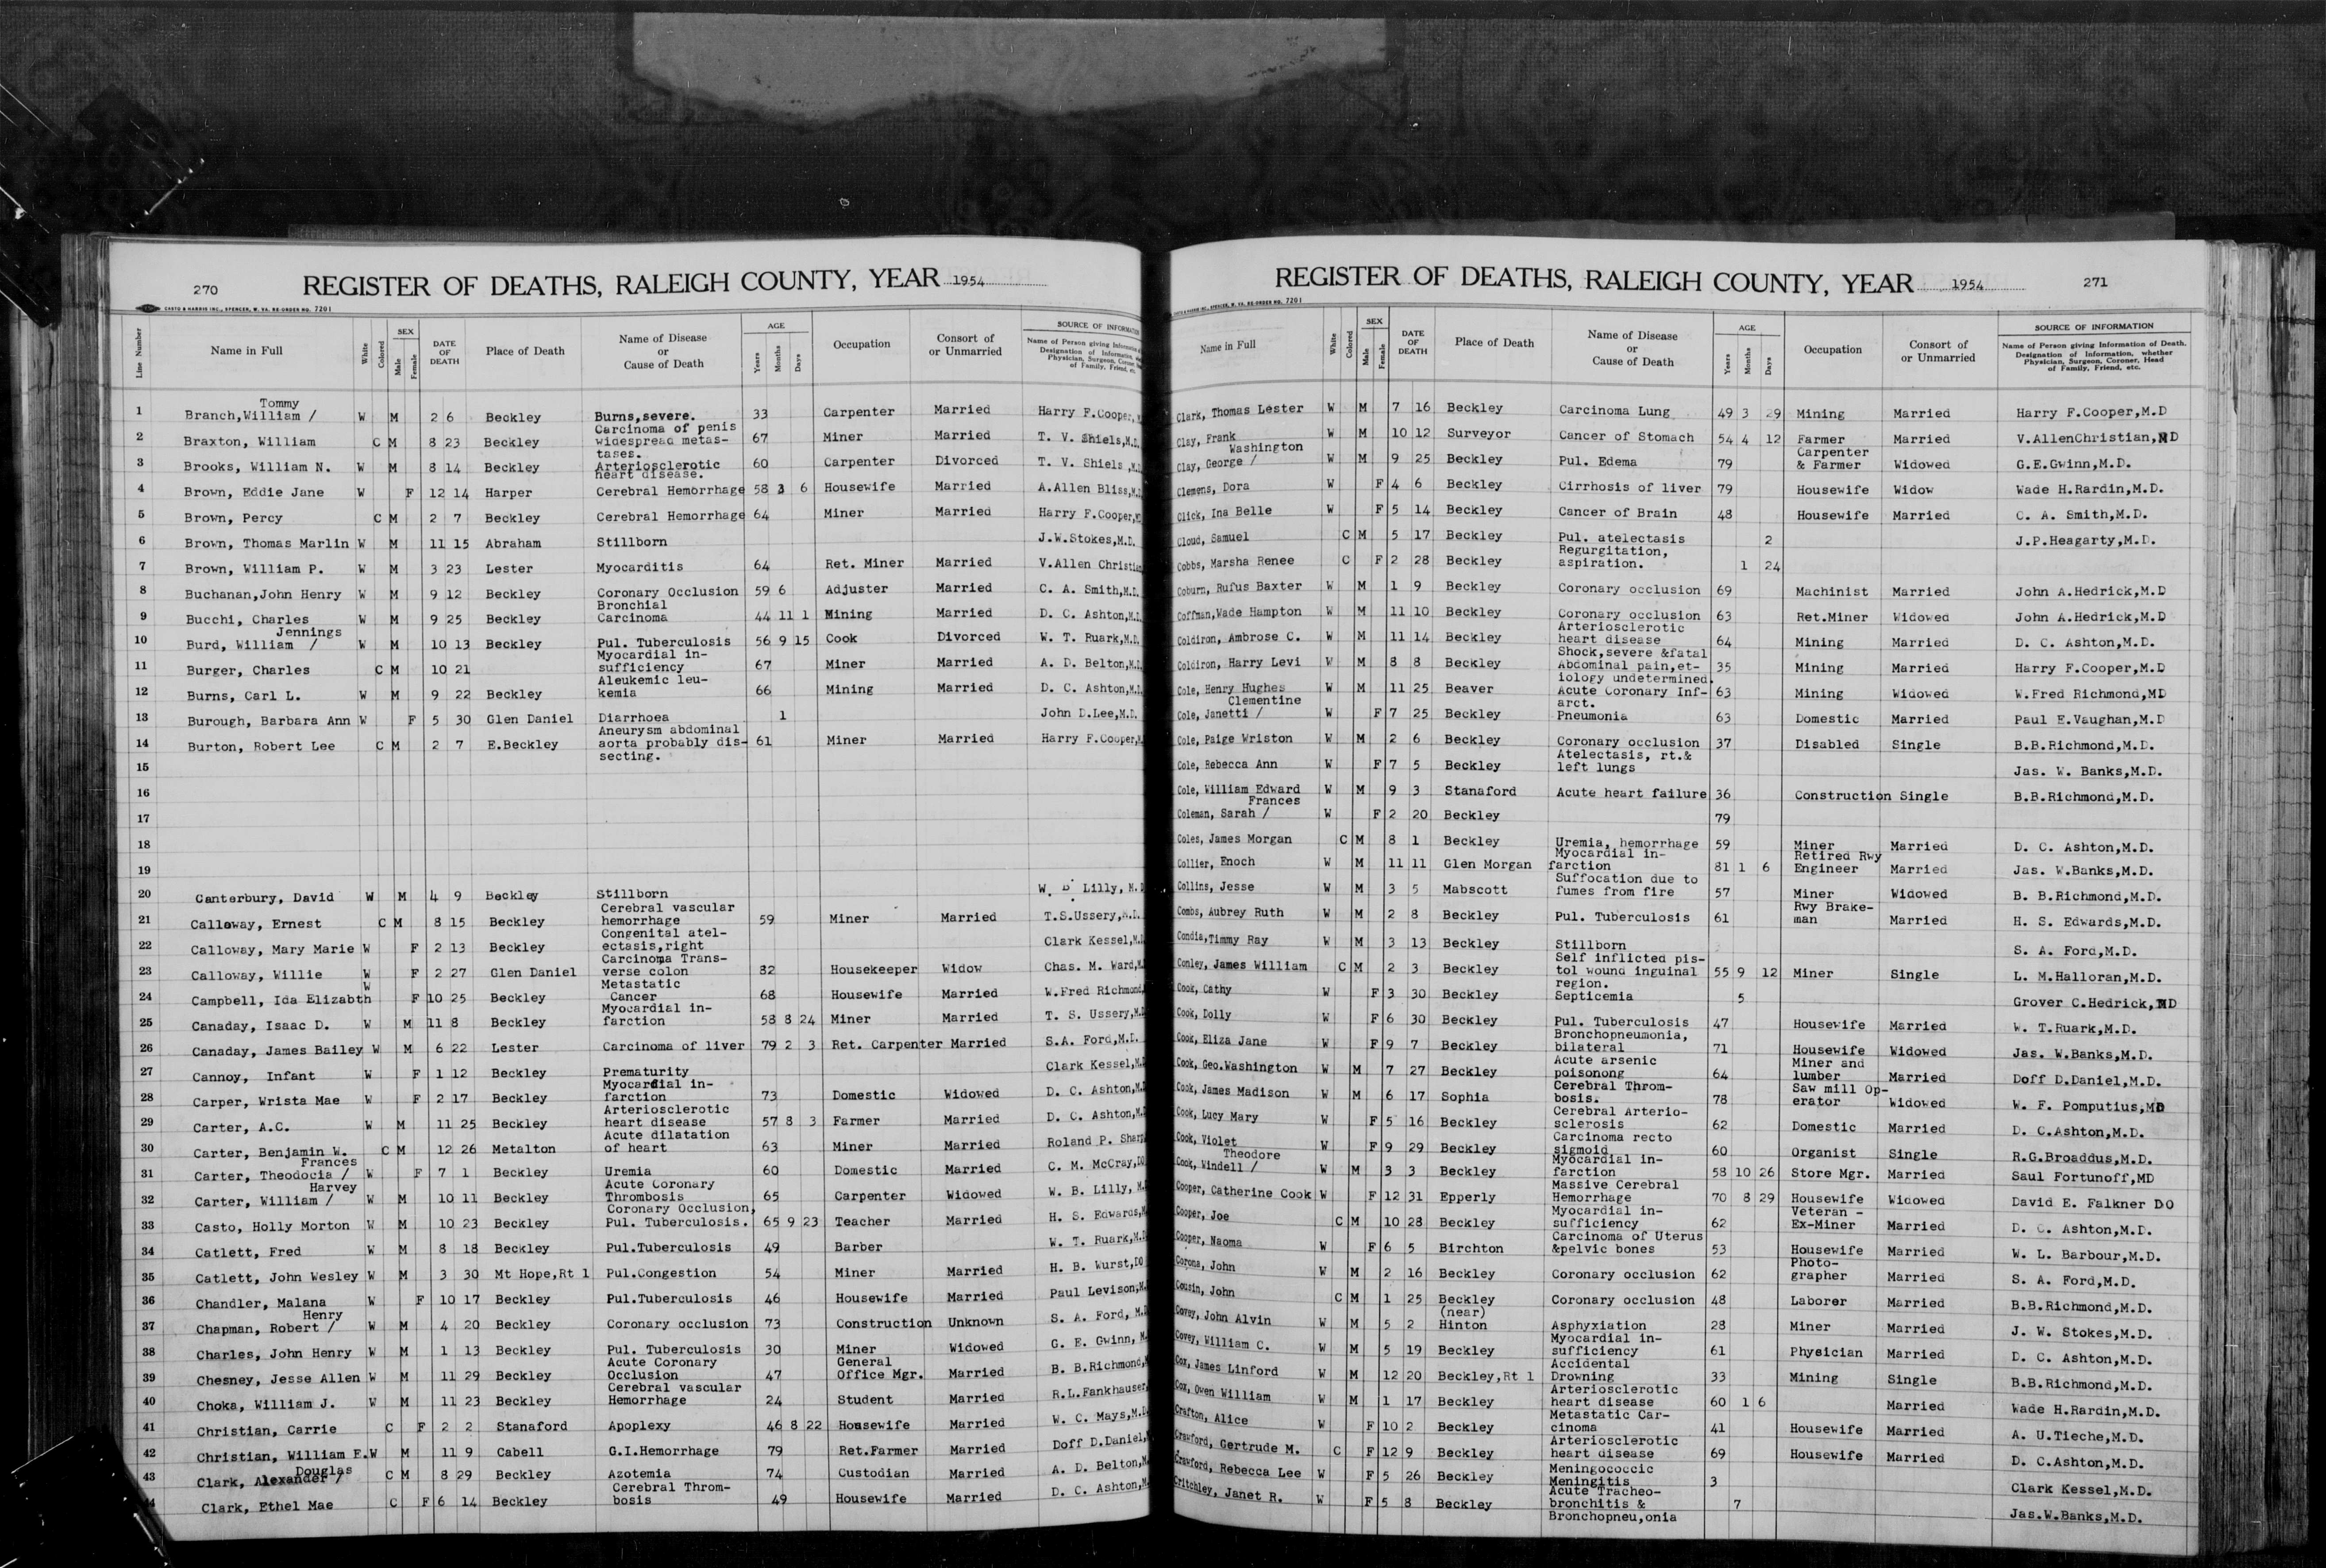 270 REGISTER OF DEATHS, RALEIGH COUNTY, YEAR 1954
CASTO & HARRIS INC., SPENCER, W. VA. RE-ORDER NO. 7201
Line Number Name in Full White Colored SEX Male Female DATE OF DEATH Place of Death Name of Disease or Cause of Death AGE Years Months Days Occupation Consort of or Unmarried SOURCE OF INFORMATION
Name of Person giving Information
Designation of Information,
Physician, Surgeon, Coroner,
of Family, Friend, etc.
1 Branch,William / Tommy W M 2 6 Beckley Burns,severe. 33 Carpenter Married Harry F.Cooper,
2 Braxton, William C M 8 23 Beckley Carcinoma of penis widespread metas- tases. 67 Miner Married T. V. Shiels,M.D.
3 Brooks, William N. W M 8 14 Beckley Arteriosclerotic heart disease. 60 Carpenter Divorced T. V. Shiels,M.D.
4 Brown, Eddie Jane W F 12 14 Harper Cerebral Hemorrhage 58 3 6 Housewife Married A.Allen Bliss,M.D.
5 Brown, Percy C M 2 7 Beckley Cerebral Hemorrhage 64 Miner Married Harry F.Cooper,
6 Brown, Thomas Marlin W M 11 15 Abraham Stillborn J.W.Stokes,M.D.
7 Brown, William P. W M 3 23 Lester Myocarditis 64 Ret. Miner Married V.Allen Christian
8 Buchanan,John Henry W M 9 12 Beckley Coronary Occlusion 59 6 Adjuster Married C. A. Smith,M.D.
9 Bucchi, Charles W M 9 25 Beckley Bronchial Carcinoma 44 11 1 Mining Married D. C. Ashton,M.D.
10 Burd, William / Jennings W M 10 13 Beckley Pul. Tuberculosis 56 9 15 Cook Divorced W. T. Ruark,M.D.
11 Burger, Charles C M 10 21 Myocardial in- sufficiency 67 Miner Married A. D. Belton,M.D.
12 Burns, Carl L. W M 9 22 Beckley Aleukemic leu- kemia 66 Mining Married D. C. Ashton,M.D.
13 Burough, Barbara Ann W F 5 30 Glen Daniel Diarrhoea 1 John D.Lee,M.D.
14 Burton, Robert Lee C M 2 7 E.Beckley Aneurysm abdominal aorta probably dis- secting. 61 Miner Married Harry F.Cooper,
15
16
17
18
19
20 Canterbury, David W M 4 9 Beckley Stillborn W. B. Lilly, M.D
21 Calloway, Ernest C M 8 15 Beckley Cerebral vascular hemorrhage 59 Miner Married T.S.Ussery,M.D.
22 Calloway, Mary Marie W F 2 13 Beckley Congenital atel- ectasis,right Clark Kessel,M.D
23 Calloway, Willie W F 2 27 Glen Daniel Carcinoma Trans- verse colon 82 Housekeeper Widow Chas. M. Ward,
24 Campbell, Ida Elizabth W F 10 25 Beckley Metastatic Cancer 68 Housewife Married W.Fred Richmond,
25 Canaday, Isaac D. W M 11 8 Beckley Myocardial in- farction 58 8 24 Miner Married T. S. Ussery,M.D
26 Canaday, James Bailey W M 6 22 Lester Carcinoma of liver 79 2 3 Ret. Carpenter Married S.A. Ford,M.D.
27 Cannoy, Infant W F 1 12 Beckley Prematurity Clark Kessel,M.D
28 Carper, Wrista Mae W F 2 17 Beckley Myocardial in- farction 73 Domestic Widowed D. C. Ashton,M.D
29 Carter, A.C. W M 11 25 Beckley Arteriosclerotic heart disease 57 8 3 Farmer Married D. C. Ashton,M.D
30 Carter, Benjamin W. C M 12 26 Metalton Acute dilatation of heart 63 Miner Married Roland P. Sharp
31 Carter, Theodocia / Frances W F 7 1 Beckley Uremia 60 Domestic Married C. M. McCray,DO
32 Carter, William / Harvey W M 10 11 Beckley Acute Coronary Thrombosis 65 Carpenter Widowed W. B. Lilly, M.D
33 Casto, Holly Morton W M 10 23 Beckley Coronary Occlusion, Pul. Tuberculosis. 65 9 23 Teacher Married H. S. Edwards,M
34 Catlett, Fred W M 8 18 Beckley Pul.Tuberculosis 49 Barber W. T. Ruark,M.D
35 Catlett, John Wesley W M 3 30 Mt Hope,Rt 1 Pul.Congestion 54 Miner Married H. B. Wurst,DO
36 Chandler, Malana W F 10 17 Beckley Pul.Tuberculosis 46 Housewife Married Paul Levison,M.
37 Chapman, Robert / Henry W M 4 20 Beckley Coronary occlusion 73 Construction Unknown S. A. Ford, M.D
38 Charles, John Henry W M 1 13 Beckley Pul. Tuberculosis 30 Miner Widowed G. E. Gwinn, M.
39 Chesney, Jesse Allen W M 11 29 Beckley Acute Coronary Occlusion 47 General Office Mgr. Married B. B.Richmond,
40 Choka, William J. W M 11 23 Beckley Cerebral vascular Hemorrhage 24 Student Married R.L.Fankhauser,
41 Christian, Carrie C F 2 2 Stanaford Apoplexy 46 8 22 Housewife Married W. C. Mays,M.D.
42 Christian, William E.W M 11 9 Cabell G.I.Hemorrhage 79 Ret.Farmer Married Doff D.Daniel,
43 Clark, Alexander / Douglas C M 8 29 Beckley Azotemia 74 Custodian Married A. D. Belton,M.
Clark, Ethel Mae C F 6 14 Beckley Cerebral Throm- bosis 49 Housewife Married D. C. Ashton,M.
REGISTER OF DEATHS, RALEIGH COUNTY, YEAR 1954 271
INC., SPENCER, W. VA. RE-ORDER NO. 7201
Name in Full White Colored SEX Male Female DATE OF DEATH Place of Death Name of Disease or Cause of Death AGE Years Months Days Occupation Consort of or Unmarried SOURCE OF INFORMATION
Name of Person giving Information of Death,
Designation of Information, whether
Physician, Surgeon, Coroner, Head
of Family, Friend, etc.
Clark, Thomas Lester W M 7 16 Beckley Carcinoma Lung 49 3 29 Mining Married Harry F.Cooper,M.D
Clay, Frank W M 10 12 Surveyor Cancer of Stomach 54 4 12 Farmer Married V.AllenChristian,MD
Clay, George / Washington W M 9 25 Beckley Pul. Edema 79 Carpenter & Farmer Widowed G.E.Gwinn,M.D.
Clemens, Dora W F 4 6 Beckley Cirrhosis of liver 79 Housewife Widow Wade H.Rardin,M.D.
Click, Ina Belle W F 5 14 Beckley Cancer of Brain 48 Housewife Married C. A. Smith,M.D.
Cloud, Samuel C M 5 17 Beckley Pul. atelectasis 2 J.P.Heagarty,M.D.
Cobbs, Marsha Renee C F 2 28 Beckley Regurgitation, aspiration. 1 24
Coburn, Rufus Baxter W M 1 9 Beckley Coronary occlusion 69 Machinist Married John A.Hedrick,M.D
Coffman,Wade Hampton W M 11 10 Beckley Coronary occlusion 63 Ret.Miner Widowed John A.Hedrick,M.D
Coldiron, Ambrose C. W M 11 14 Beckley Arteriosclerotic heart disease 64 Mining Married D. C. Ashton,M.D.
Coldiron, Harry Levi W M 8 8 Beckley Shock,severe &fatal Abdominal pain,et- iology undetermined. 35 Mining Married Harry F.Cooper,M.D
Cole, Henry Hughes W M 11 25 Beaver Acute Coronary Inf- arct. 63 Mining Widowed W.Fred Richmond,MD
Cole, Janetti / Clementine W F 7 25 Beckley Pneumonia 63 Domestic Married Paul E.Vaughan,M.D
Cole, Paige Wriston W M 2 6 Beckley Coronary occlusion 37 Disabled Single B.B.Richmond,M.D.
Cole, Rebecca Ann W F 7 5 Beckley Atelectasis, rt.& left lungs Jas. W. Banks,M.D.
Cole, William Edward W M 9 3 Stanaford Acute heart failure 36 Construction Single B.B.Richmond,M.D.
Coleman, Sarah / Frances W F 2 20 Beckley 79
Coles, James Morgan C M 8 1 Beckley Uremia, hemorrhage 59 Miner Married D. C. Ashton,M.D.
Collier, Enoch W M 11 11 Glen Morgan Myocardial in- farction 81 1 6 Retired Rwy Engineer Married Jas. W.Banks,M.D.
Collins, Jesse W M 3 5 Mabscott Suffocation due to fumes from fire 57 Miner Widowed B. B.Richmond,M.D.
Combs, Aubrey Ruth W M 2 8 Beckley Pul. Tuberculosis 61 Rwy Brake- man Married H. S. Edwards,M.D.
Condia,Timmy Ray W M 3 13 Beckley Stillborn S. A. Ford,M.D.
Conley, James William C M 2 3 Beckley Self inflicted pis- tol wound inguinal region. 55 9 12 Miner Single L. M.Halloran,M.D.
Cook, Cathy W F 3 30 Beckley Septicemia 5 Grover C.Hedrick,MD
Cook, Dolly W F 6 30 Beckley Pul. Tuberculosis 47 Housewife Married W. T.Ruark,M.D.
Cook, Eliza Jane W F 9 7 Beckley Bronchopneumonia, bilateral 71 Housewife Widowed Jas. W.Banks,M.D.
Cook, Geo.Washington W M 7 27 Beckley Acute arsenic poisonong 64 Miner and lumber Married Doff D.Daniel,M.D.
Cook, James Madison W M 6 17 Sophia Cerebral Throm- bosis. 78 Saw mill Op- erator Widowed W. F. Pomputius,MD
Cook, Lucy Mary W F 5 16 Beckley Cerebral Arterio- sclerosis 62 Domestic Married D. C.Ashton,M.D.
Cook, Violet W F 9 29 Beckley Carcinoma recto sigmoid 60 Organist Single R.G.Broaddus,M.D.
Cook, Windell / Theodore W M 3 3 Beckley Myocardial in- farction 58 10 26 Store Mgr. Married Saul Fortunoff,MD
Cooper, Catherine Cook W F 12 31 Epperly Massive Cerebral Hemorrhage 70 8 29 Housewife Widowed David E. Falkner DO
Cooper, Joe C M 10 28 Beckley Myocardial in- sufficiency 62 Veteran - Ex-Miner Married D. C. Ashton,M.D.
Cooper, Naoma W F 6 5 Birchton Carcinoma of Uterus &pelvic bones 53 Housewife Married W. L. Barbour,M.D.
Corona, John W M 2 16 Beckley Coronary occlusion 62 Photo- grapher Married S. A. Ford,M.D.
Cousin, John C M 1 25 Beckley Coronary occlusion 48 Laborer Married B.B.Richmond,M.D.
Covey, John Alvin W M 5 2 (near) Hinton Asphyxiation 28 Miner Married J. W. Stokes,M.D.
Covey, William C. W M 5 19 Beckley Myocardial in- sufficiency 61 Physician Married D. C. Ashton,M.D.
Cox, James Linford W M 12 20 Beckley,Rt 1 Accidental Drowning 33 Mining Single B.B.Richmond,M.D.
Cox, Owen William W M 1 17 Beckley Arteriosclerotic heart disease 60 1 6 Married Wade H.Rardin,M.D.
Crafton, Alice W F 10 2 Beckley Metastatic Car- cinoma 41 Housewife Married A. U.Tieche,M.D.
Crawford, Gertrude M. C F 12 9 Beckley Arteriosclerotic heart disease 69 Housewife Married D. C.Ashton,M.D.
Crawford, Rebecca Lee W F 5 26 Beckley Meningococcic Meningitis 3 Clark Kessel,M.D.
Critchley, Janet R. W F 5 8 Beckley Acute Tracheo- bronchitis & Bronchopneu,onia 7 Jas.W.Banks,M.D.